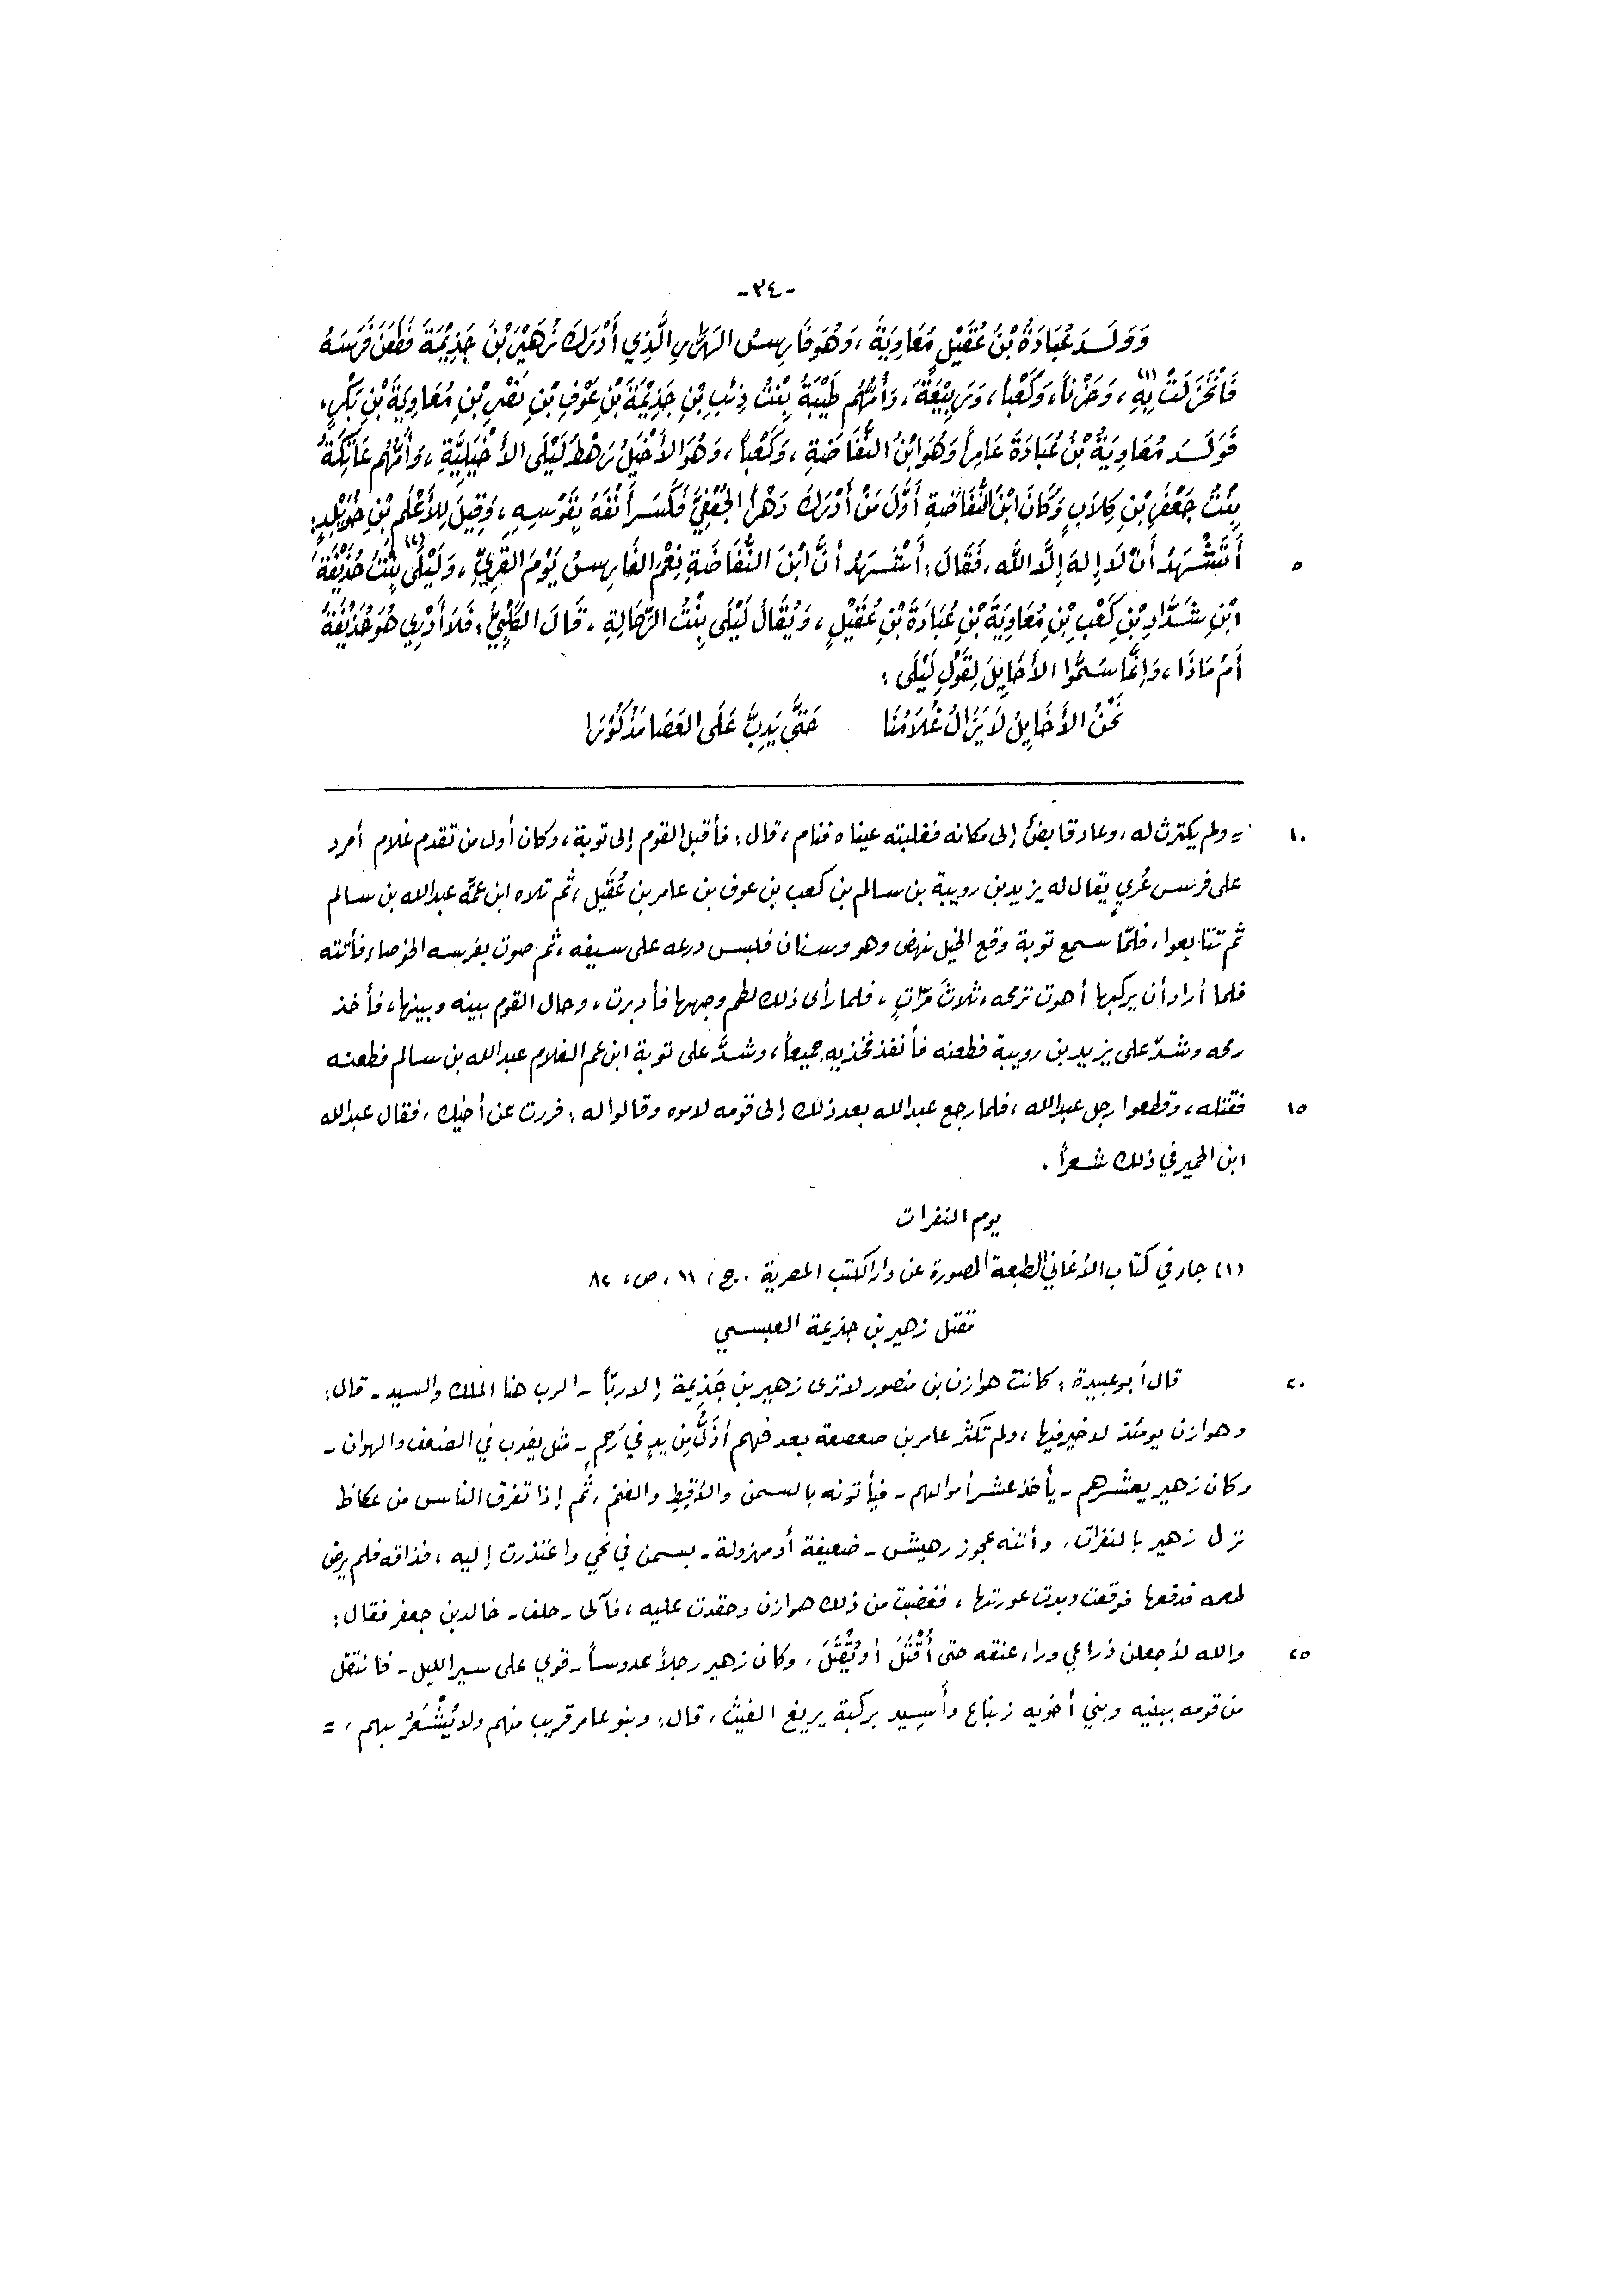 -٣٤-
وَوَلَـدَ عُبَادَةُ بْنُ عُقَيْلٍ مُعَاوِيَةَ، وَهُوَ فَارِسُ الهَرَّارِ الَّذِي أَدْرَكَ زُهَيْرَ بْنَ جَذِيْمَةَ فَطَعَنَ فَرَسَهُ
فَانْخَزَلَتْ بِهِ (١)، وَحَزْناً، وَكَعْباً، وَرَبِيْعَةَ، وَأُمُّهُم طَيْبَةُ بِنْتُ ذِئْبِ بْنِ جَذِيْمَةَ بْنِ عَوْفِ بْنِ نَصْرِ بْنِ مُعَاوِيَةَ بْنِ بَكْرٍ،
فَوَلَـدَ مُعَاوِيَةُ بْنُ عُبَادَةَ عَامِراً وَهُوَ ابْنُ النُّفَاضَةِ، وَكَعْباً، وَهُوَ الأَخْيَلُ رَهْطُ لَيْلَى الأَخْيَلِيَّةِ، وَأُمُّهُم عَاتِكَةُ
بِنْتُ جَعْفَرِ بْنِ كِلَابٍ وَكَانَ ابْنُ النُّفَاضَةِ أَوَّلَ مَنْ أَدْرَكَ دَهْراً الجُعْفِيَّ فَكَسَرَ أَنْفَهُ بِقَوْسِهِ، وَقِيلَ لِلأَعْلَمِ بْنِ خُوَيْلِدٍ:
٥ أَتَشْهَدُ أَنْ لَا إِلهَ إِلَّا اللّه، فَقَالَ: أَشْهَدُ أَنَّ ابْنَ النُّفَاضَةِ نِعْمَ الفَارِسُ يَوْمَ القَرِيِّ، وَلَيْلَى (٢) بِنْتُ حُذَيْفَةَ
ابْنِ شَدَّادِ بْنِ كَعْبِ بْنِ مُعَاوِيَةَ بْنِ عُبَادَةَ بْنِ عُقَيْلٍ، وَيُقَالُ لَيْلَى بِنْتُ الرَّحَالَةِ، قَالَ الكَلْبِيُّ: فَلَا أَدْرِي هُوَ حُذَيْفَةُ
أَمْ مَاذَا، وَإِنَّمَا سَمُّوا الأَخَايِلَ لِقَوْلِ لَيْلَى:
نَحْنُ الأَخَايِلُ لَا يَزَالُ غُلَامُنَا حَتَّى يَدِبَّ عَلَى العَصَا مَذْكُوْرَا
١٠ = ولم يكترث له، وعاد قابضٌ إلى مكانه فغلبته عيناه فنام، قال: فأقبل القوم إلى توبة، وكان أول من تقدم غلام أمرد
على فرس عُريٍ يقال له يزيد بن رويبة بن سالم بن كعب بن عوف بن عامر بن عُقَيل، ثم تلاه ابن عمّه عبدالله بن سالم
ثم تتابعوا، فلمّا سمع توبة وقع الخيل نهض وهو وسنان فلبس درعه على سيفه، ثم صوت بفرسه الخوصاء فأتته
فلما أراد أن يركبها أهوت ترمحه، ثلاثَ مرّاتٍ، فلما رأى ذلك لطم وجهها فأدبرت، وحال القوم بينه وبينها، فأخذ
رمحه وشدَّ على يزيد بن رويبة فطعنه فأنفذ فخذيه جميعاً، وشدَّ على توبة ابن عم الغلام عبدالله بن سالم فطعنه
١٥ فقتله، وقطعوا رجل عبدالله، فلما رجع عبدالله بعد ذلك إلى قومه لاموه وقالوا له: فررت عن أخيك، فقال عبدالله
ابن الحمير في ذلك شعراً.
يوم النفرات
(١) جاء في كتاب الأغاني الطبعة المصورة عن دار الكتب المصرية . ج، ١١، ص، ٨٢
مقتل زهير بن جذيمة العبسي
٢٠ قال أبو عبيدة: كانت هوازن بن منصور لا ترى زهير بن جَذِيمة إلا ربّاً - الرب هنا الملك والسيد - قال:
وهوازن يومئذ لا خير فيها، ولم تكثر عامر بن صعصعة بعد فهم أذَلُّ مِن يدٍ في رَحِمٍ - مثل يضرب في الضعف والهوان -
وكان زهير يعشرهم - يأخذ عشر أموالهم - فيأتونه بالسمن والأقِطِ والغنم، ثم إذا تفرق الناس من عكاظ
نزل زهير بالنفرات، وأتته عجوز رهيش - ضعيفة أو مهزولة - بسمن في نحي واعتذرت إليه، فذاقه فلم يرض
طعمه فدفعها فوقعت وبدت عورتها، فغضبت من ذلك هوازن وحقدت عليه، فآلى - حلف - خالد بن جعفر فقال:
٢٥ والله لأجعلن ذراعي وراء عنقه حتى أُقْتَلَ أو يُقْتَلَ، وكان زهير رجلاً عدوساً - قوي على سير الليل - فانتقل
من قومه ببنيه وبني أخويه زنباع وأَسِيد بركبة يريغ الغيث، قال: وبنو عامر قريب منهم ولا يُشْعَرُ بهم، =